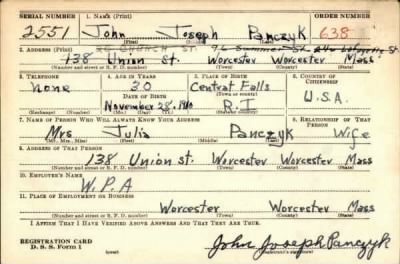 SERIAL NUMBER 1. NAME (Print) ORDER NUMBER
2551 John Joseph Panczyk 638
(First) (Middle) (Last)
2. ADDRESS (Print)
138 Union St. Worcester Worcester Mass
(Number and street or R. F. D. number) (Town) (County) (State)
3. TELEPHONE 4. AGE IN YEARS 5. PLACE OF BIRTH 6. COUNTRY OF CITIZENSHIP
None 30 Central Falls
DATE OF BIRTH (Town or county)
November 28, 1910 R. I. U.S.A.
(Exchange) (Number) (Mo.) (Day) (Yr.) (State or country)
7. NAME OF PERSON WHO WILL ALWAYS KNOW YOUR ADDRESS 8. RELATIONSHIP OF THAT PERSON
Mrs Julia Panczyk Wife
(Mr., Mrs., Miss) (First) (Middle) (Last)
9. ADDRESS OF THAT PERSON
138 Union St. Worcester Worcester Mass
(Number and street or R. F. D. number) (Town) (County) (State)
10. EMPLOYER'S NAME
W.P.A
11. PLACE OF EMPLOYMENT OR BUSINESS
Worcester Worcester Mass
(Number and street or R. F. D. number) (Town) (County) (State)
I AFFIRM THAT I HAVE VERIFIED ABOVE ANSWERS AND THAT THEY ARE TRUE.
REGISTRATION CARD
D. S. S. Form 1 (over) John Joseph Panczyk